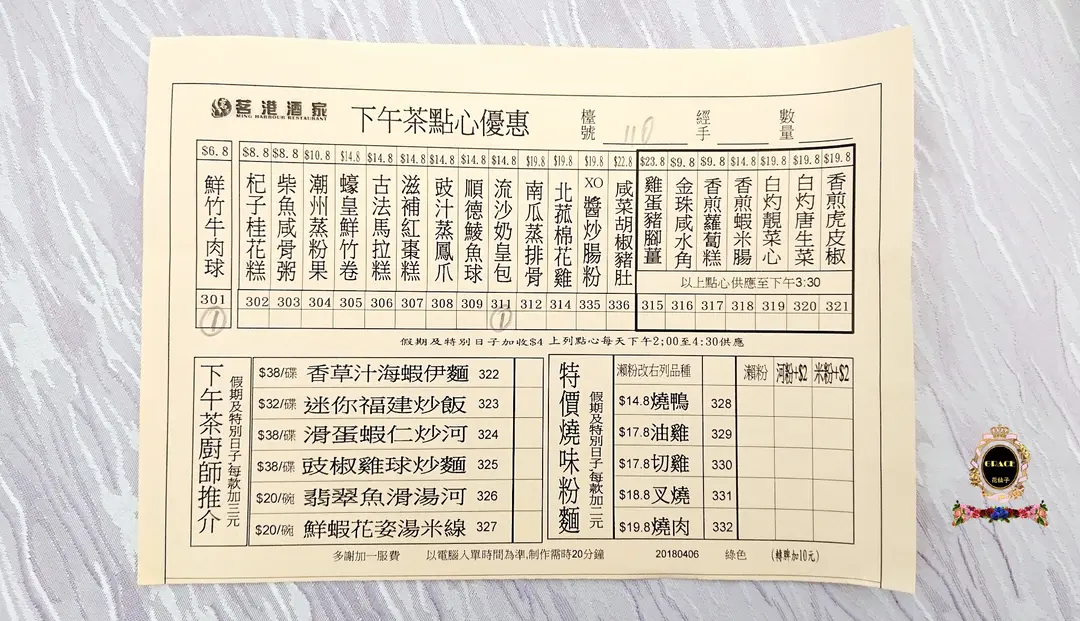 茗港酒家
MING HARBOUR RESTAURANT
下午茶點心優惠
檯號 110
經手
數量
$6.8 鮮竹牛肉球 301 1
$8.8 杞子桂花糕 302
$8.8 柴魚咸骨粥 303
$10.8 潮州蒸粉果 304
$14.8 蠔皇鮮竹卷 305
$14.8 古法馬拉糕 306
$14.8 滋補紅棗糕 307
$14.8 豉汁蒸鳳爪 308
$14.8 順德鯪魚球 309
$14.8 流沙奶皇包 311 1
$19.8 南瓜蒸排骨 312
$19.8 北菰棉花雞 314
$19.8 XO醬炒腸粉 335
$22.8 咸菜胡椒豬肚 336
$23.8 雞蛋豬腳薑 315
$9.8 金珠咸水角 316
$9.8 香煎蘿蔔糕 317
$14.8 香煎蝦米腸 318
$19.8 白灼靚菜心 319
$19.8 白灼唐生菜 320
$19.8 香煎虎皮椒 321
以上點心供應至下午3:30
假期及特別日子加收$4 上列點心每天下午2;00至4:30供應
下午茶廚師推介
假期及特別日子,每款加三元
$38/碟 香草汁海蝦伊麵 322
$32/碟 迷你福建炒飯 323
$38/碟 滑蛋蝦仁炒河 324
$38/碟 豉椒雞球炒麵 325
$20/碗 翡翠魚滑湯河 326
$20/碗 鮮蝦花姿湯米線 327
特價燒味粉麵
假期及特別日子,每款加二元
瀨粉改右列品種 瀨粉 河粉+$2 米粉+$2
$14.8燒鴨 328
$17.8油雞 329
$17.8切雞 330
$18.8叉燒 331
$19.8燒肉 332
多謝加一服費 以電腦入單時間為準,制作需時20分鐘 20180406 綠色 (轉牌加10元)
GRACE
花仙子